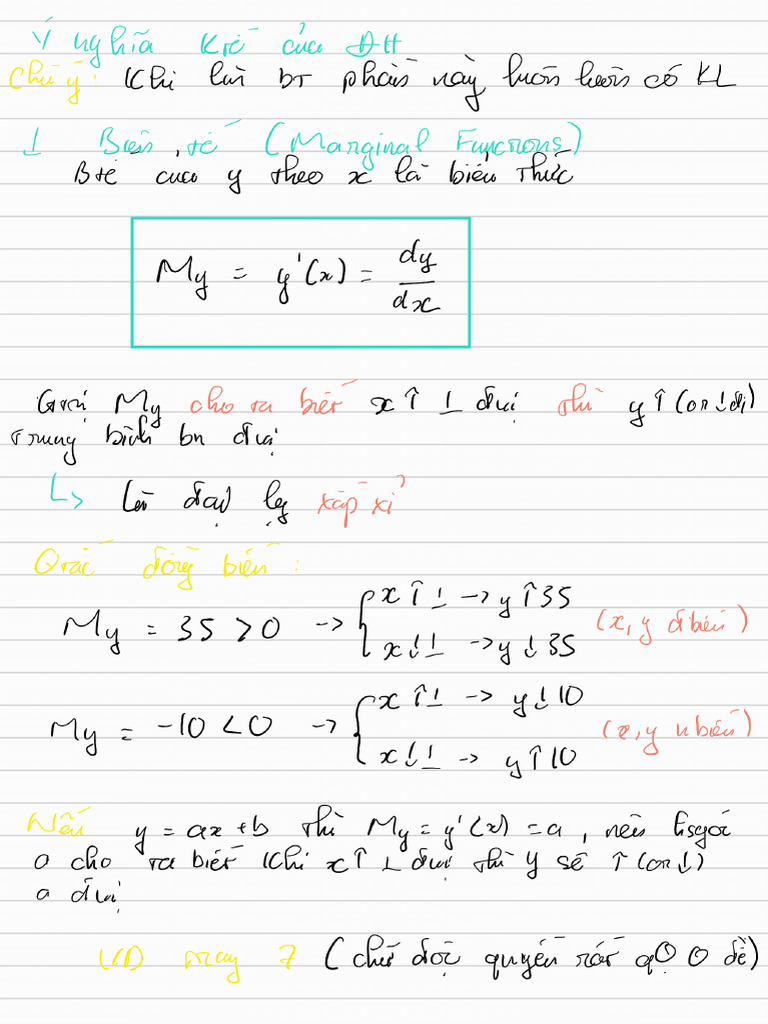 Ý nghĩa Ktế của ĐH
Chú ý: Khi làm BT phần này luôn luôn có KL
1 Biên tế (Marginal Functions)
Btế của y theo x là biểu thức
My = y'(x) = dy/dx
Giá trị My cho ta biết x↑ 1 đvị thì y↑ (or↓đi)
trung bình bn đvị
↳ Là đại lg xấp xỉ
Qtắc đồng biến:
My = 35 > 0 → { x↑1 → y↑35
x↓1 → y↓35 (x, y đbiến)
My = -10 < 0 → { x↑1 → y↓10
x↓1 → y↑10 (x, y nbiến)
Nếu y = ax + b thì My = y'(x) = a, nên
a cho ta biết khi x↑ 1 đvị thì y sẽ ↑(or↓)
a đvị
VD trang 7 (chứ đọc quyển rất ở đề)